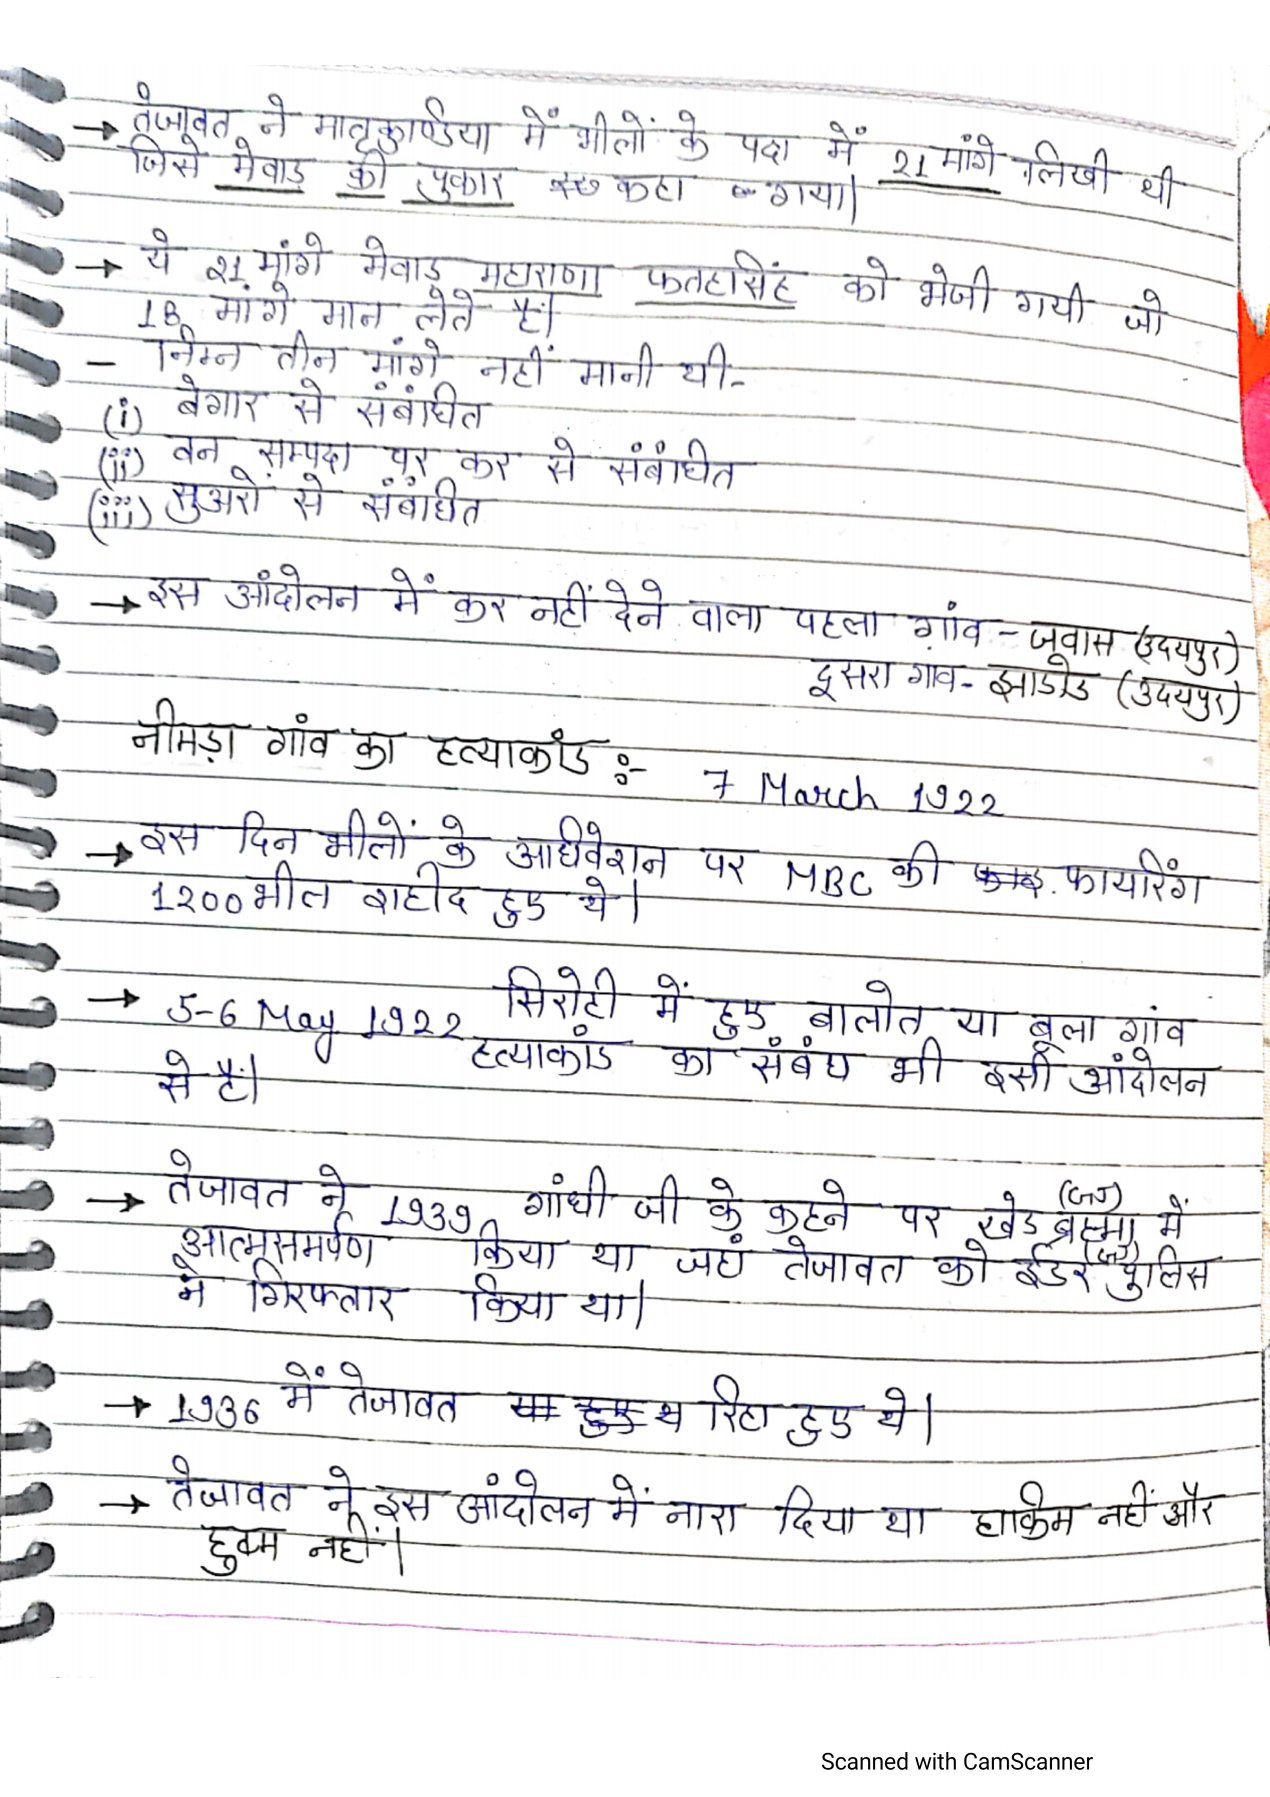 → तेजावत ने मातृकुण्डिया में भीलों के पक्ष में 21 मांगे लिखी थी
जिसे मेवाड़ की पुकार कहा गया।
→ ये 21 मांगे मेवाड़ महाराणा फतहसिंह को भेजी गयी जो
18 मांगे मान लेते हैं।
– निम्न तीन मांगे नहीं मानी थी-
(i) बेगार से संबंधित
(ii) वन सम्पदा पर कर से संबंधित
(iii) सुअरों से संबंधित
→ इस आंदोलन में कर नहीं देने वाला पहला गांव – जूवास (उदयपुर)
दूसरा गाव- झाडोड (उदयपुर)
नीमड़ा गांव का हत्याकांड :- 7 March 1922
→ इस दिन भीलों के अधिवेशन पर MBC की फायरिंग
1200 भील शहीद हुए थे।
→ 5-6 May 1922 सिरोही में हुए बालोत या बूला गांव
हत्याकांड का संबंध भी इसी आंदोलन
से है।
→ तेजावत ने 1939 गांधी जी के कहने पर खेड ब्रह्मा (गुज) में
आत्मसमर्पण किया था जहां तेजावत को ईडर (गुज) पुलिस
ने गिरफ्तार किया था।
→ 1936 में तेजावत रिहा हुए थे।
→ तेजावत ने इस आंदोलन में नारा दिया था हाकिम नहीं और
हुक्म नहीं।
Scanned with CamScanner